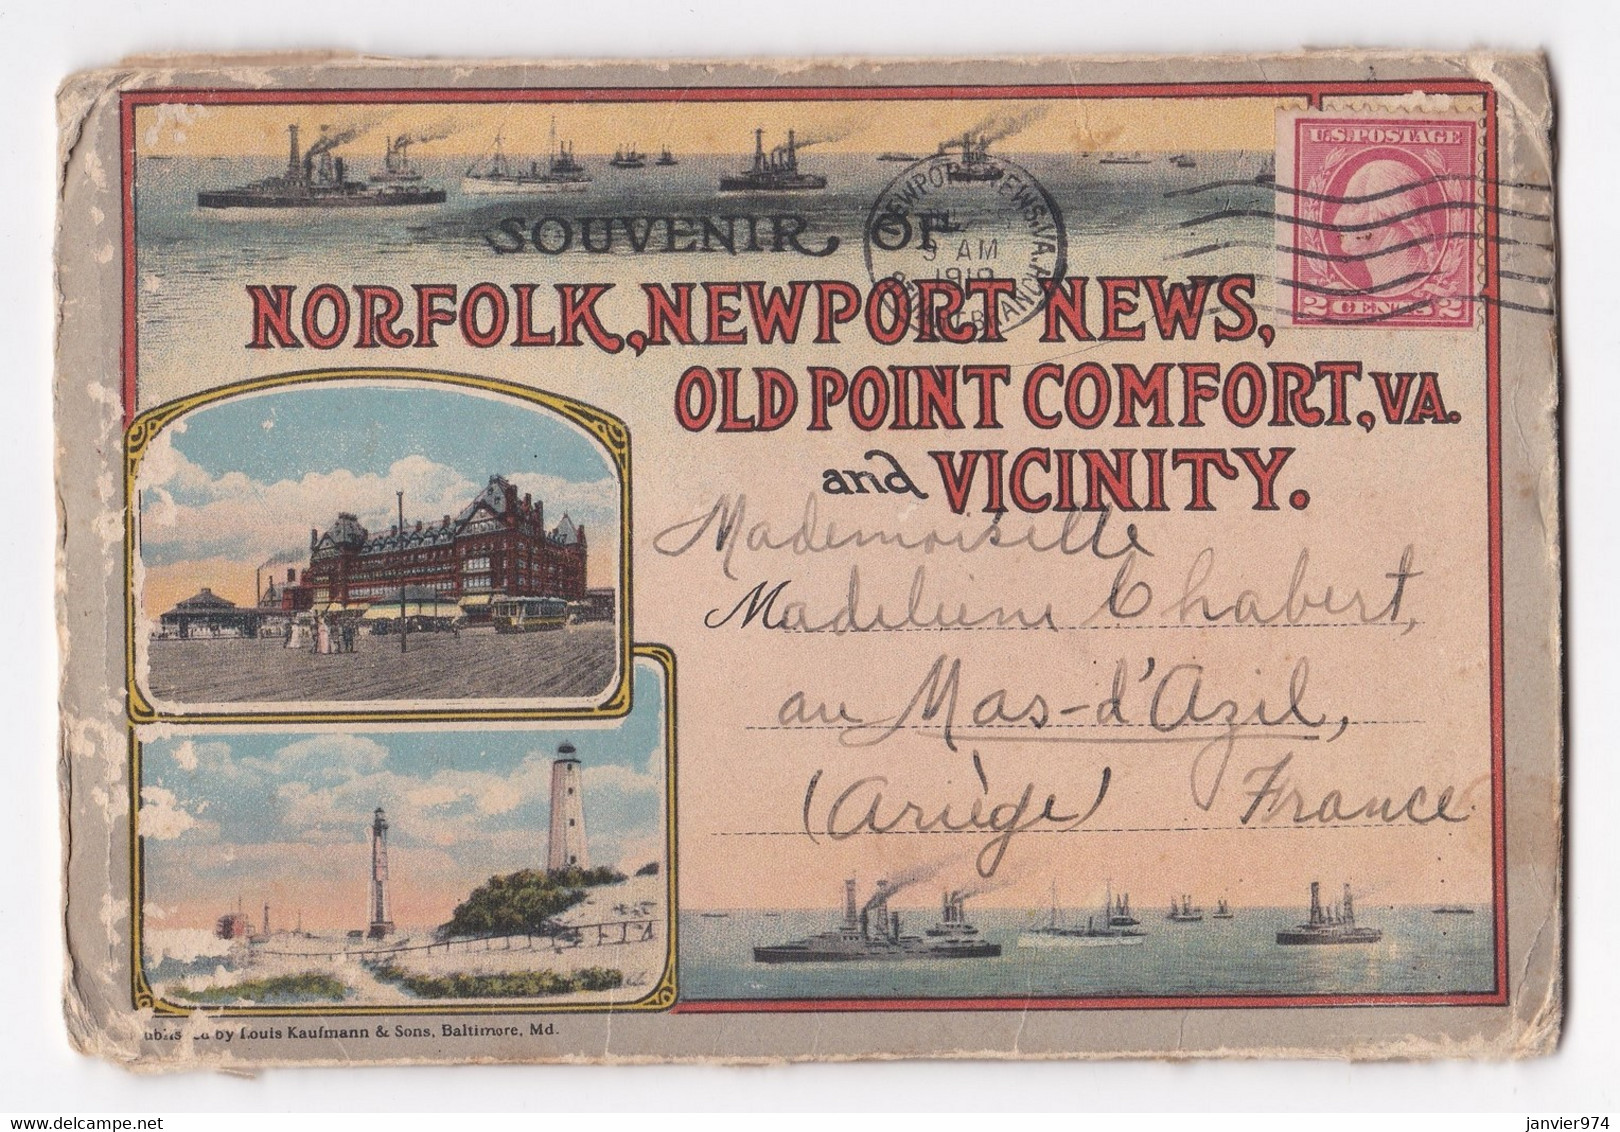 SOUVENIR OF
NORFOLK, NEWPORT NEWS,
OLD POINT COMFORT, VA.
and VICINITY.
NEWPORT NEWS, VA.
9 AM
1919
BRANCH
U.S. POSTAGE
2 CENTS 2
Mademoiselle
Madeleine Chabert,
au Mas-d'Azil,
(Ariège) France
Published by Louis Kaufmann & Sons, Baltimore, Md.
janvier974